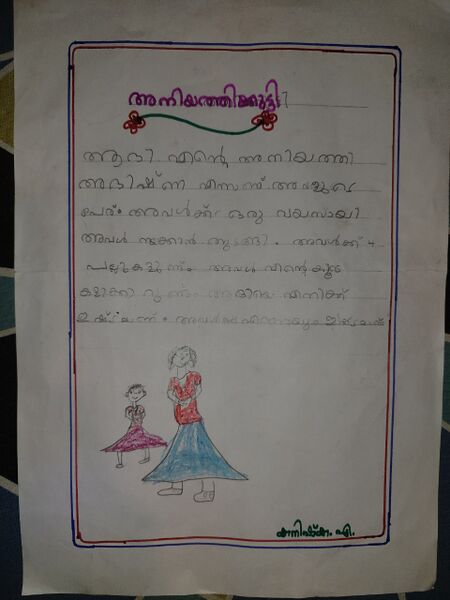 അനിയത്തിക്കുട്ടി
ആദി എന്റെ അനിയത്തി
അദിഷ്ണ എന്നാണ് അവളുടെ
പേര് അവൾക്ക് ഒരു വയസായി
അവൾ നടക്കാൻ തുടങ്ങി. അവൾക്ക് 4
പല്ലുകളുണ്ട് അവൾ എന്റെകൂടെ
കളിക്കാൻ വരും ആദിയെ എനിക്ക്
ഇഷ്ടമാണ്. അവൾക്ക് എന്നെയും ഇഷ്ടമാണ്
കനിഷ്ക. എ.